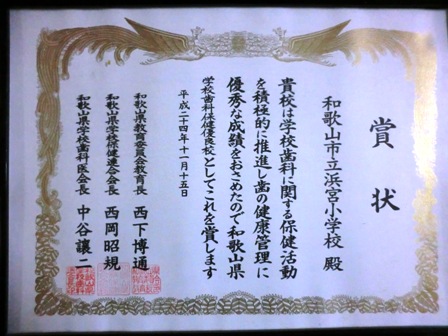 賞状
和歌山市立浜宮小学校 殿
貴校は学校歯科に関する保健活動
を積極的に推進し歯の健康管理に
優秀な成績をおさめたので和歌山県
学校歯科保健優良校としてこれを賞します
平成二十四年十一月十五日
和歌山県教育委員会教育長 西下博通
和歌山県学校保健連合会会長 西岡昭規
和歌山県学校歯科医会長 中谷譲二